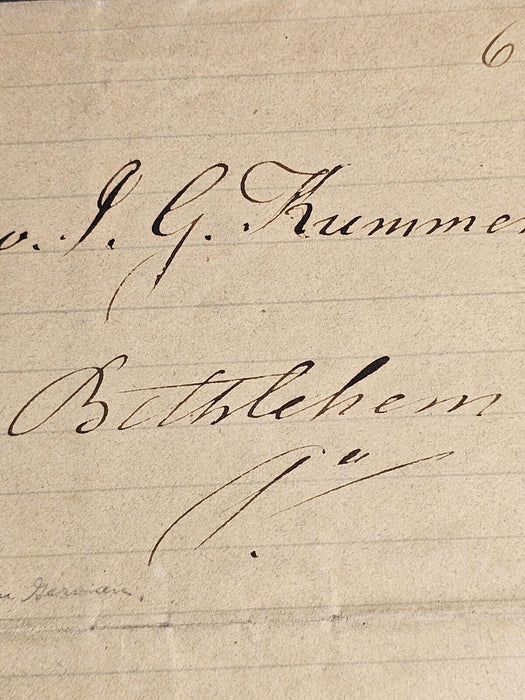 6
v. J. G. Kummer
Bethlehem
Pa.
German.